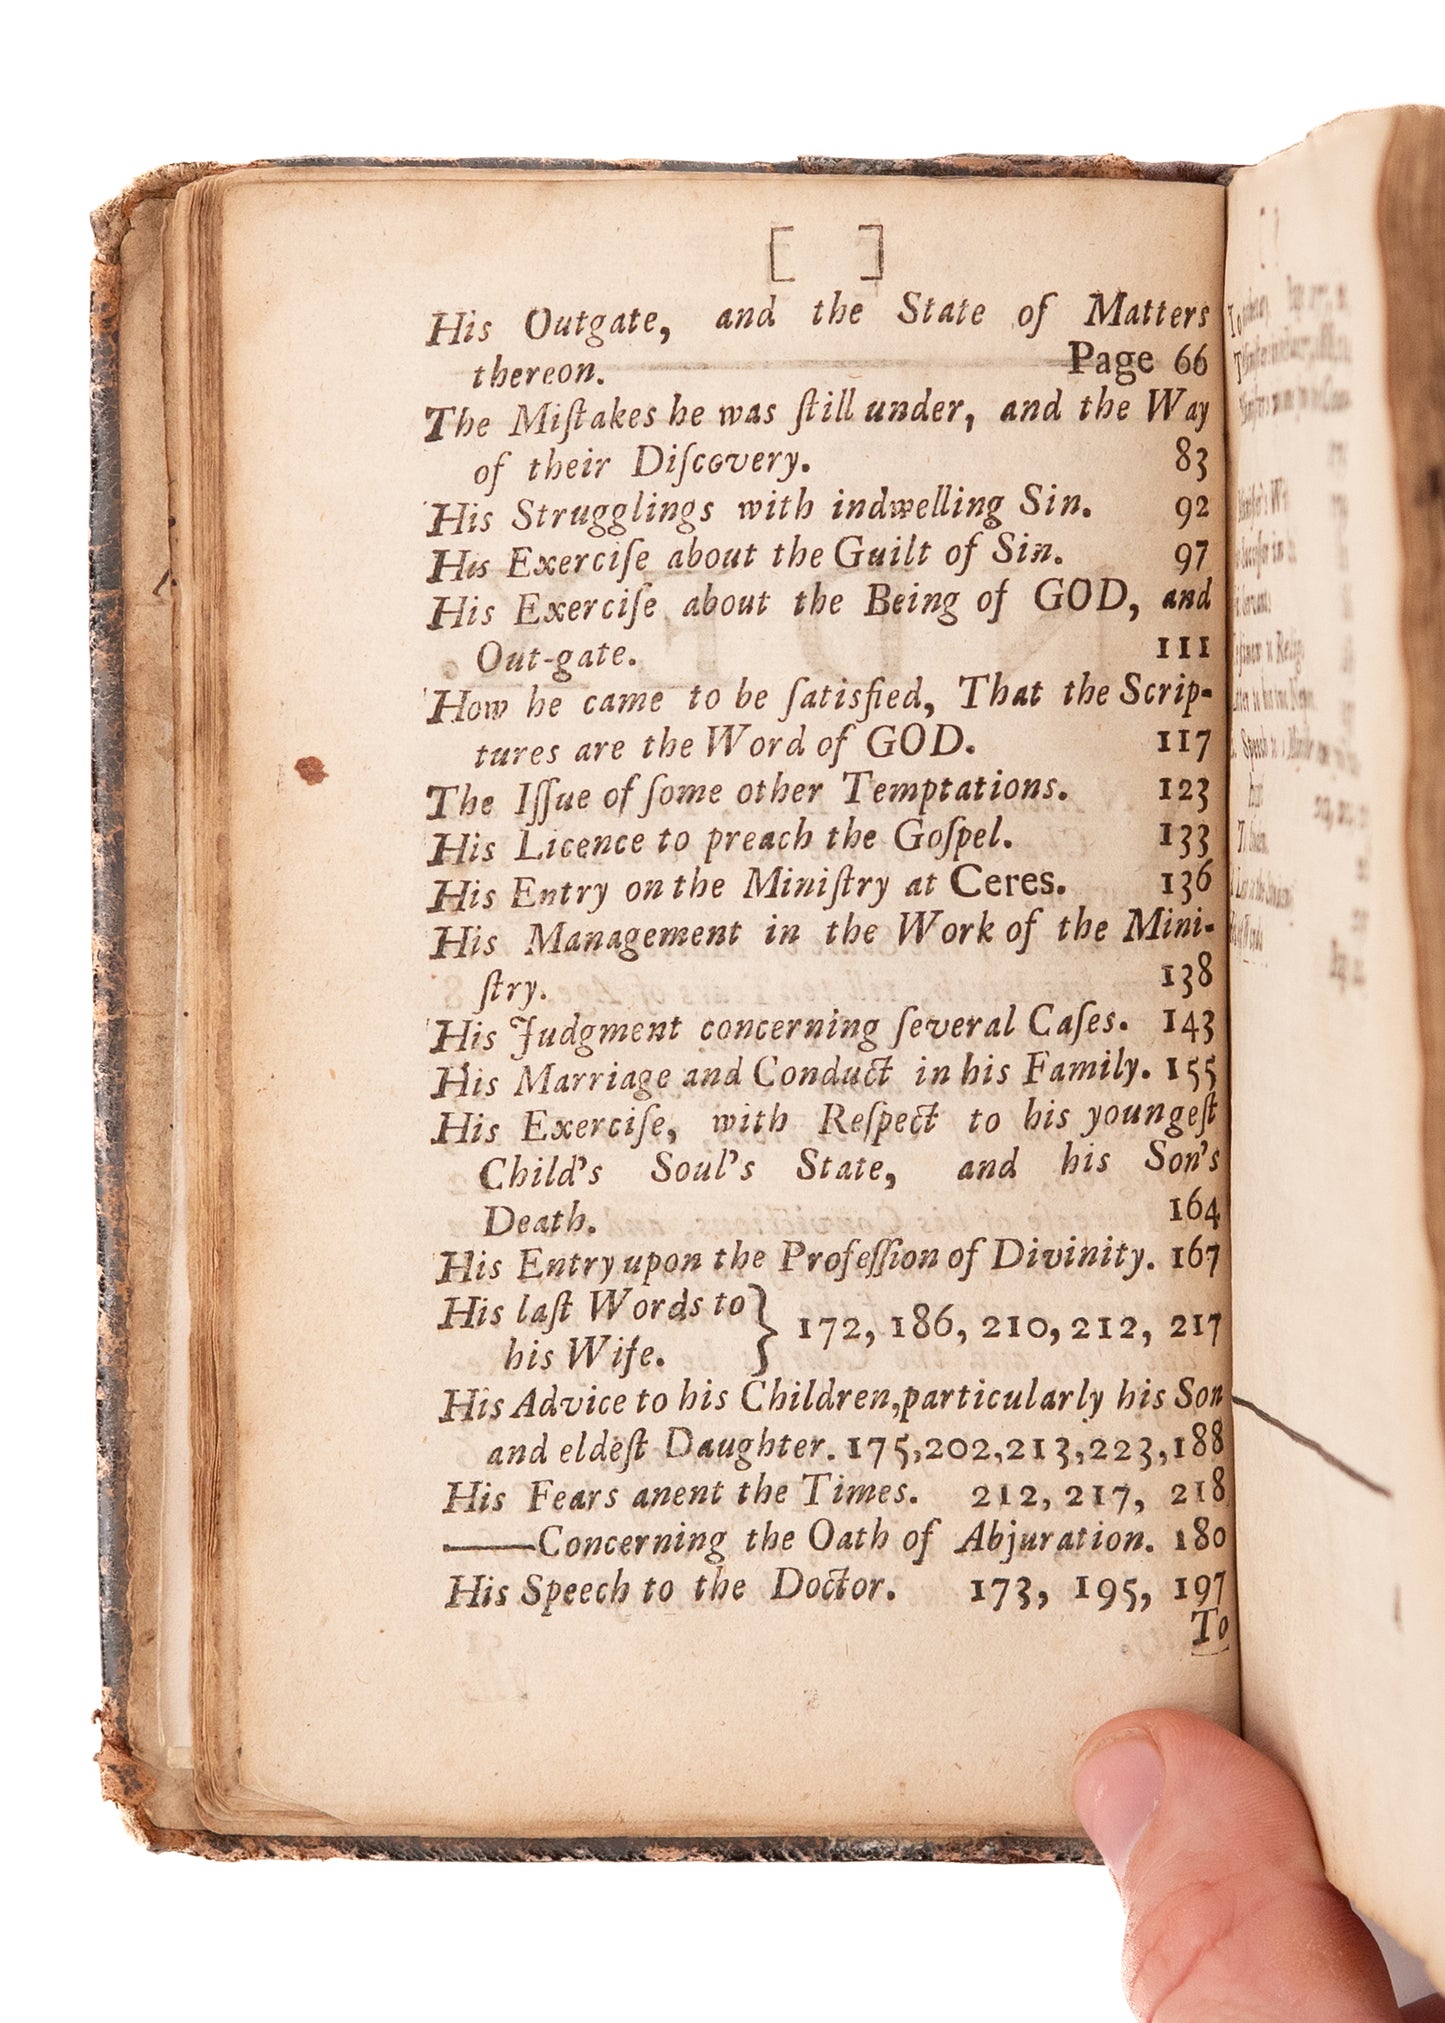 [ ]
His Outgate, and the State of Matters
thereon. Page 66
The Miſtakes he was ſtill under, and the Way
of their Diſcovery. 83
His Strugglings with indwelling Sin. 92
His Exerciſe about the Guilt of Sin. 97
His Exerciſe about the Being of GOD, and
Out-gate. 111
How he came to be ſatisfied, That the Scrip-
tures are the Word of GOD. 117
The Iſſue of ſome other Temptations. 123
His Licence to preach the Goſpel. 133
His Entry on the Miniſtry at Ceres. 136
His Management in the Work of the Mini-
ſtry. 138
His Judgment concerning ſeveral Caſes. 143
His Marriage and Conduct in his Family. 155
His Exerciſe, with Reſpect to his youngeſt
Child's Soul's State, and his Son's
Death. 164
His Entry upon the Profeſſion of Divinity. 167
His laſt Words to
his Wife. } 172, 186, 210, 212, 217
His Advice to his Children, particularly his Son
and eldeſt Daughter. 175, 202, 213, 223, 188
His Fears anent the Times. 212, 217, 218
——Concerning the Oath of Abjuration. 180
His Speech to the Doctor. 173, 195, 197
To